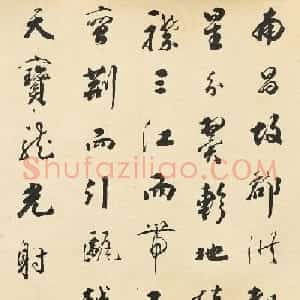 南昌故郡洪
星分翼軫地接
襟三江而帶
蠻荊而引甌越
天寶龍光射
Shufaziliao.com